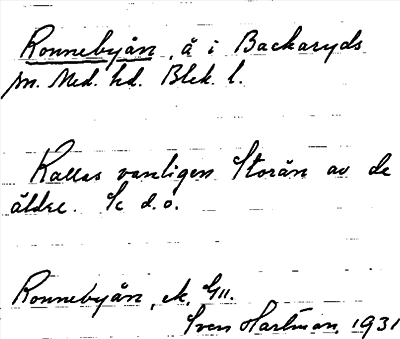 Ronnebyån, å i Backaryds
sn. Med. hd. Blek. l.
Kallas vanligen Storån av de
äldre. Se d.o.
Ronnebyån, ek. G11.
Sven Hartman 1931